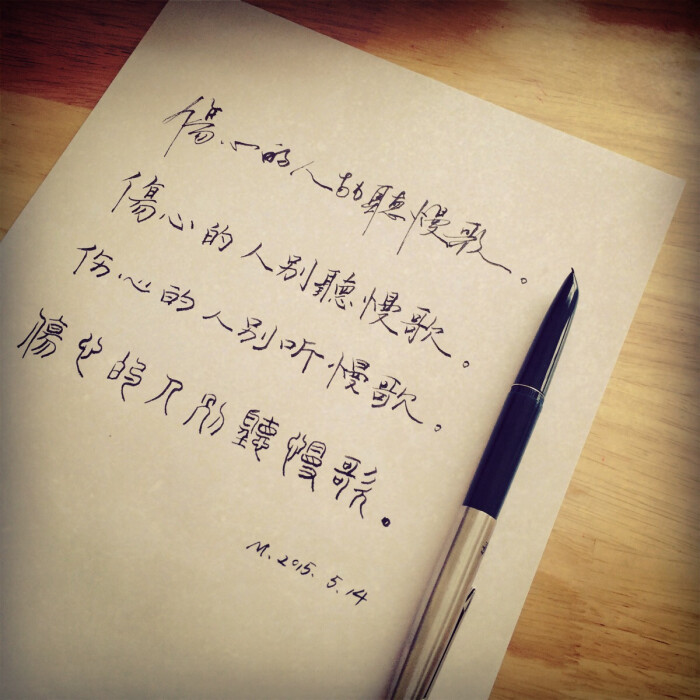 傷心的人别聽慢歌。
傷心的人别聽慢歌。
伤心的人别听慢歌。
傷心的人别聽慢歌。
M. 2015. 5. 14